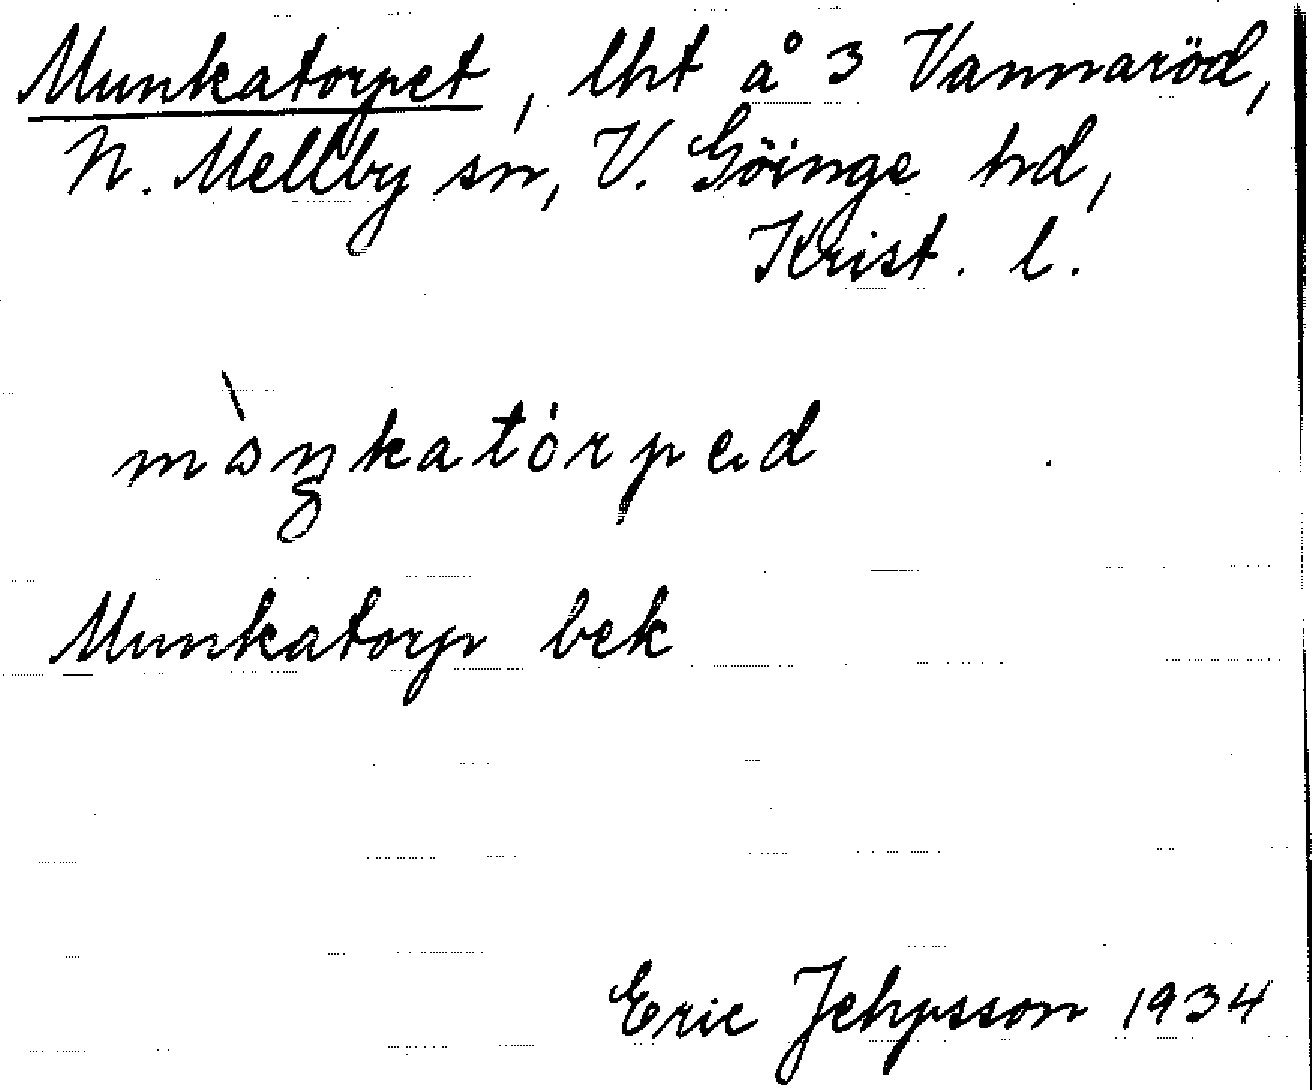 Munkatorpet, lht å 3 Vannaröd,
N. Mellby sn, V. Göinge hd,
Krist. l.
mòŋkatórped
Munkatorp bek
Eric Jehpsson 1934